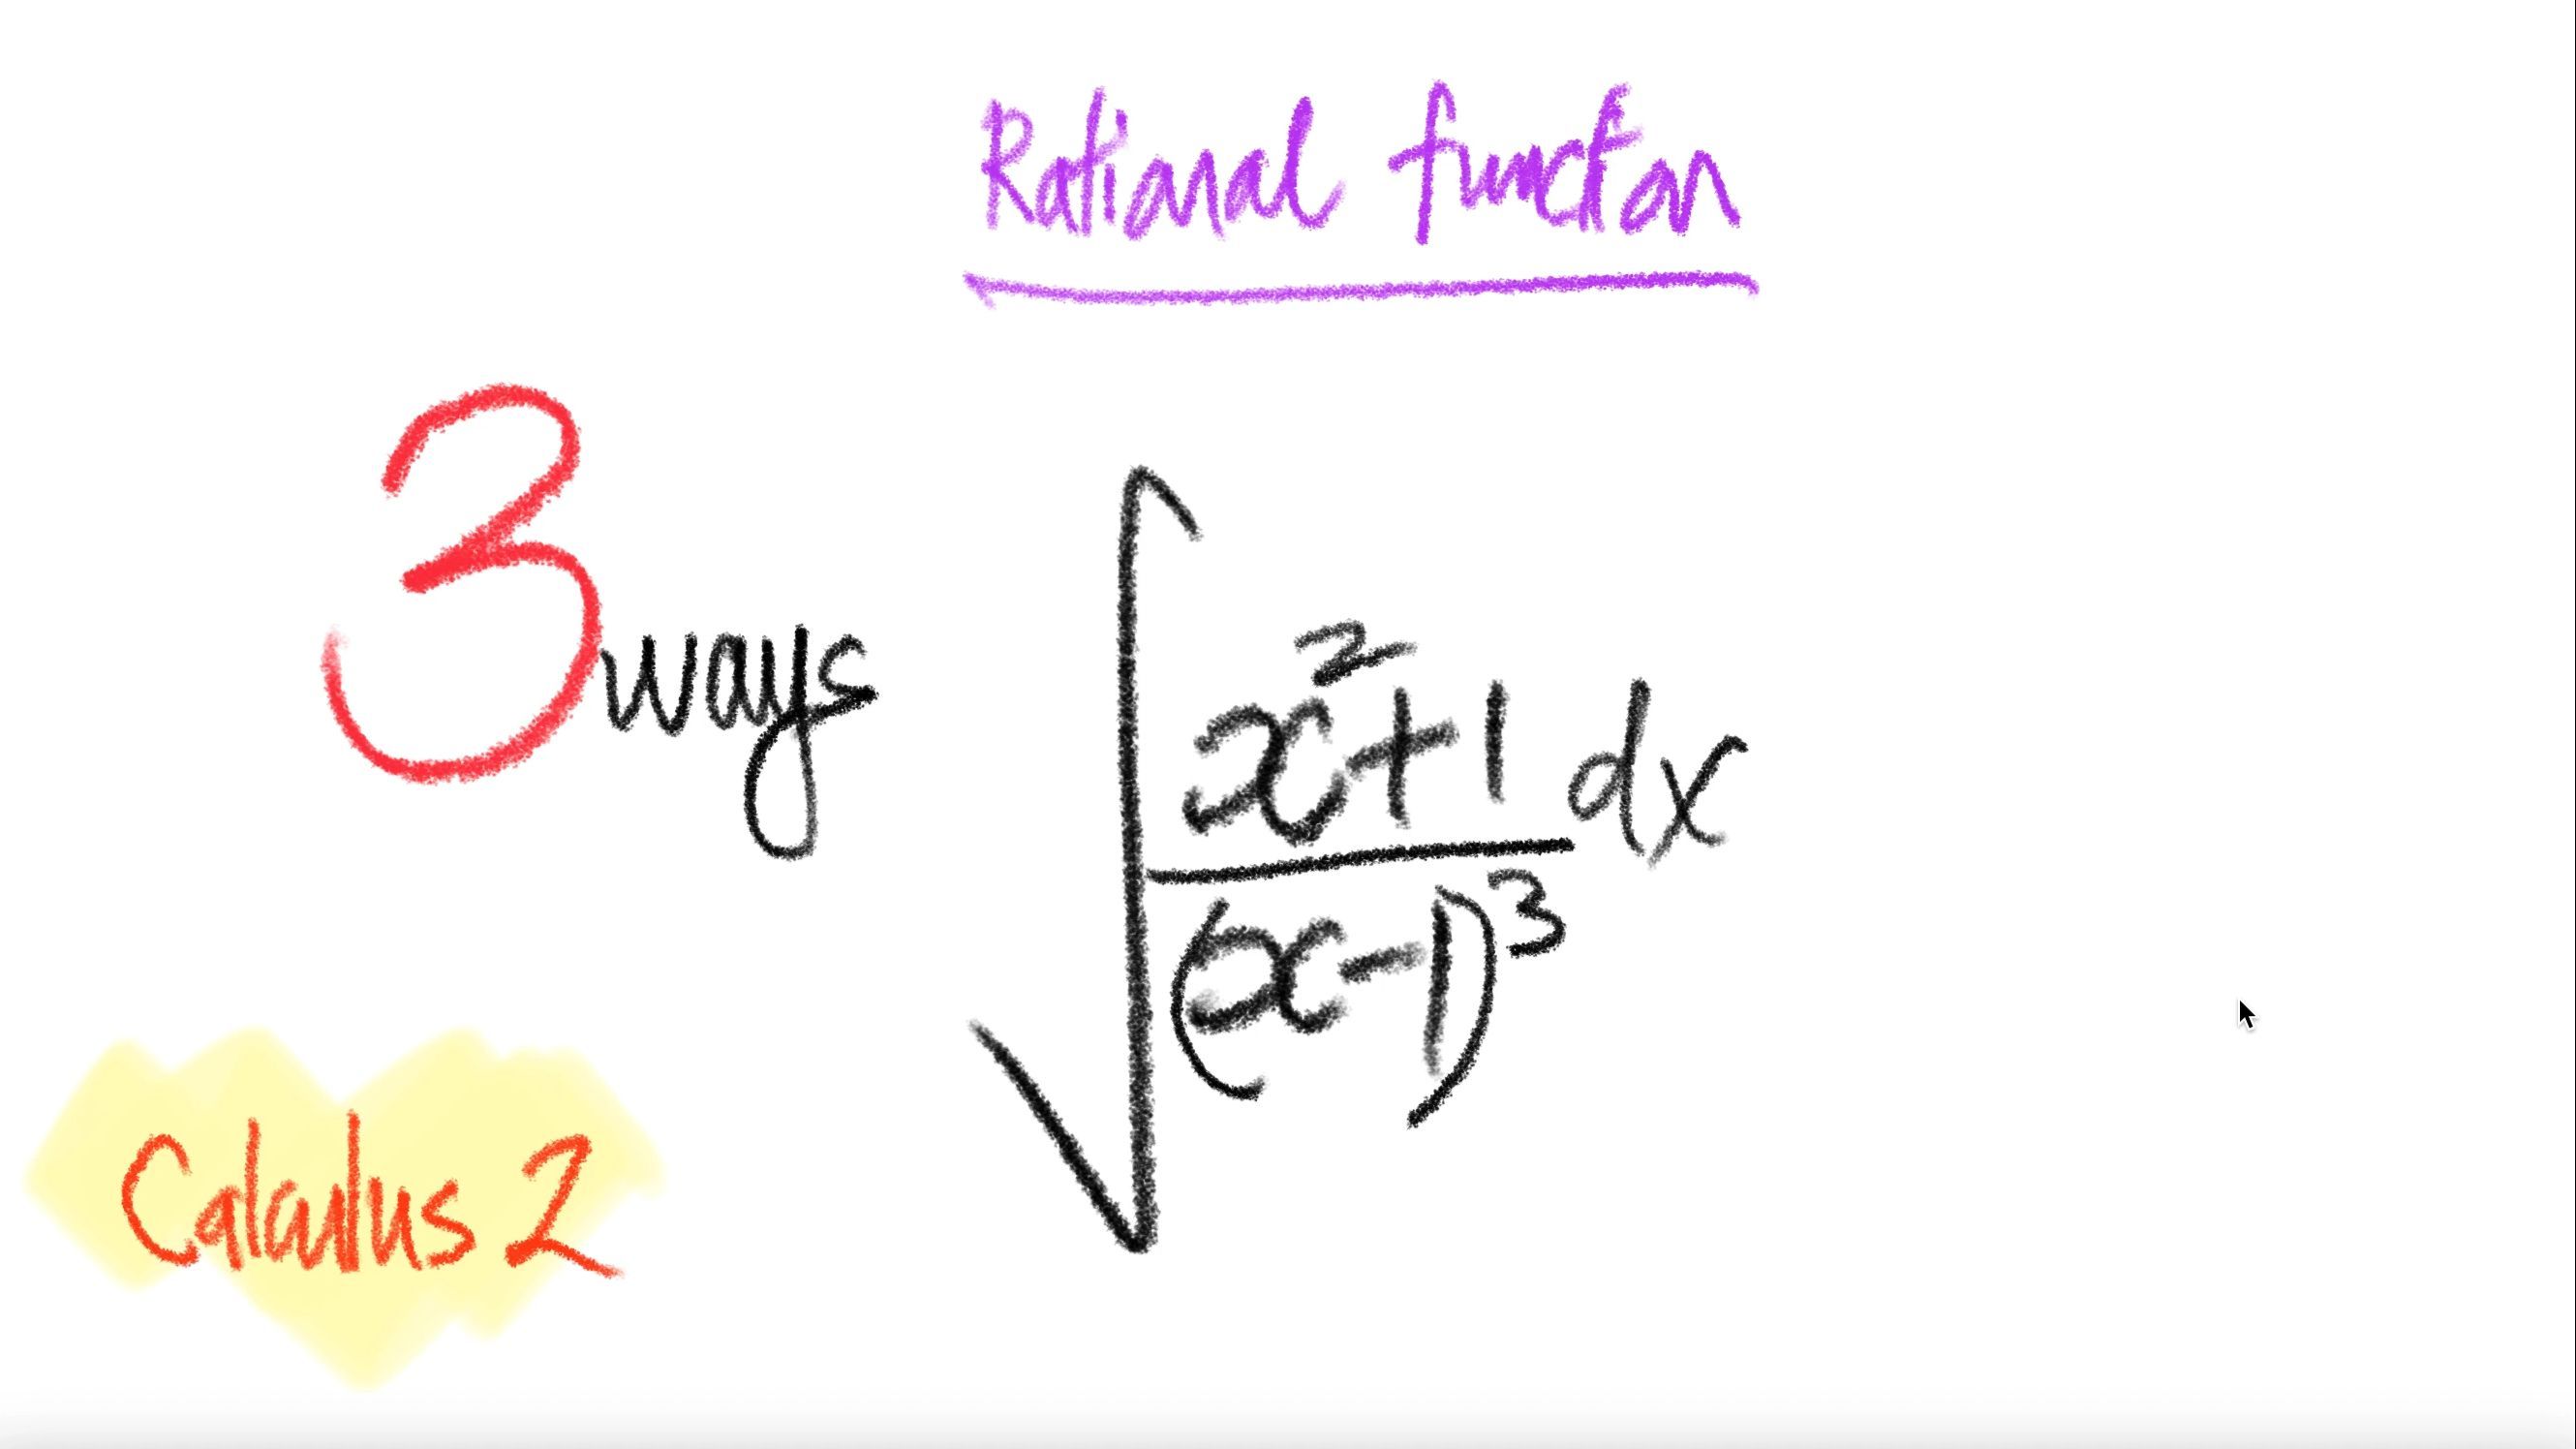 Rational functon
3 ways
∫ x²+1 dx
(x-1)³
Calculus 2